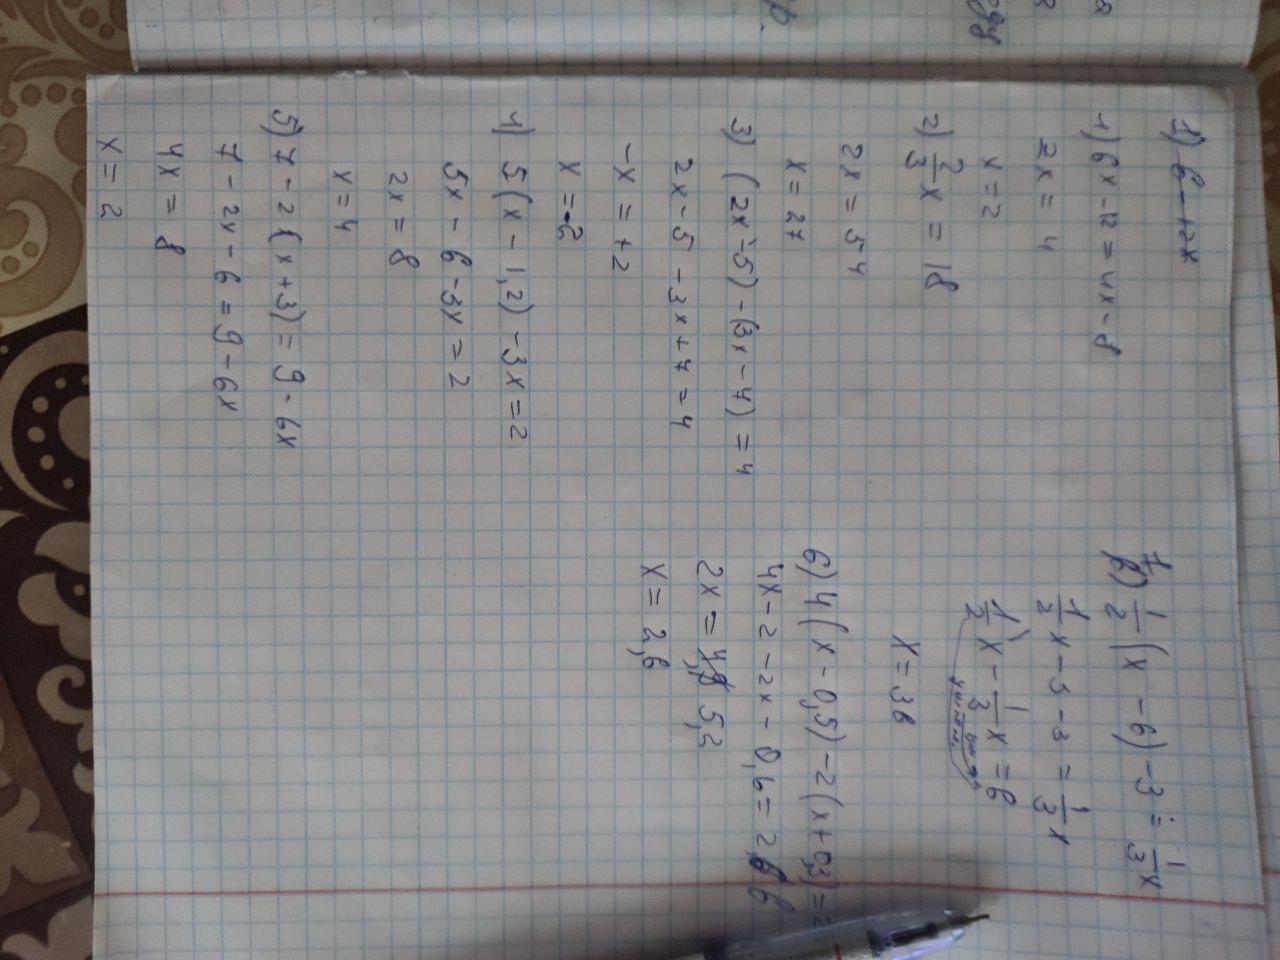 1) 6-12x
1) 6x-12=4x-8
2x = 4
x=2
2) 2/3 x = 18
2x = 54
x = 27
3) (2x-5) - (3x-4) = 4
2x-5 - 3x+4 = 4
-x = +2
x = -2
4) 5(x - 1,2) - 3x = 2
5x - 6 - 3x = 2
2x = 8
x = 4
5) 7 - 2(x+3) = 9 - 6x
7 - 2x - 6 = 9 - 6x
4x = 8
x = 2
7
6) 1/2 (x - 6) - 3 = 1/3 x
1/2 x - 3 - 3 = 1/3 x
1/2 x - 1/3 x = 6
x = 36
6) 4(x - 0,5) - 2(x+0,3) = 2
4x - 2 - 2x - 0,6 = 2,6
2x = 5,2
x = 2,6